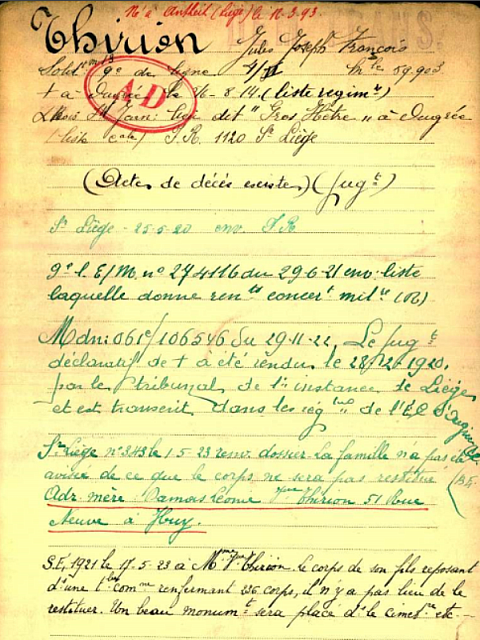 Né à Antheit (Liège) le 16.3.93.
Thirion Jules Joseph François
Sold mle 9e de ligne 4/II Mle 59903
+ à Ougrée le 6-8-14 (liste regimre)
lieu dit "Gros Hêtre" à Ougrée
(liste S.R. 1120 St Liège
(Actes de décès existe) (Jugt)
St Liège - 25-5-20 env. S.R
9e l. E/M. no 274116 du 29-6-21 env: liste
laquelle donne rents concert milre (06)
Mdn: 061e/106546 du 29-11-22, Le jugt
déclaratif de + à été rendu le 28/ 1920,
par le tribunal de 1re instance de Liège
et est transcrit dans les reg de l'E.C. d'Ougrée
St Liège no 343 le 1.5.23 renv. dossier. La famille n'a pas été
avisée de ce que le corps ne sera pas restitué
Adr. mère: Damas Léonie Vve Thirion 51 Rue
Neuve à Huy.
S.E, 1921 le 17.5.23 à Mme Vve Thirion. le corps de son fils reposant
d'une tbe comne renfermant 226 corps, il n'y a pas lieu de le
restituer. Un beau monumt sera placé ds le cimetre etc.-
AD